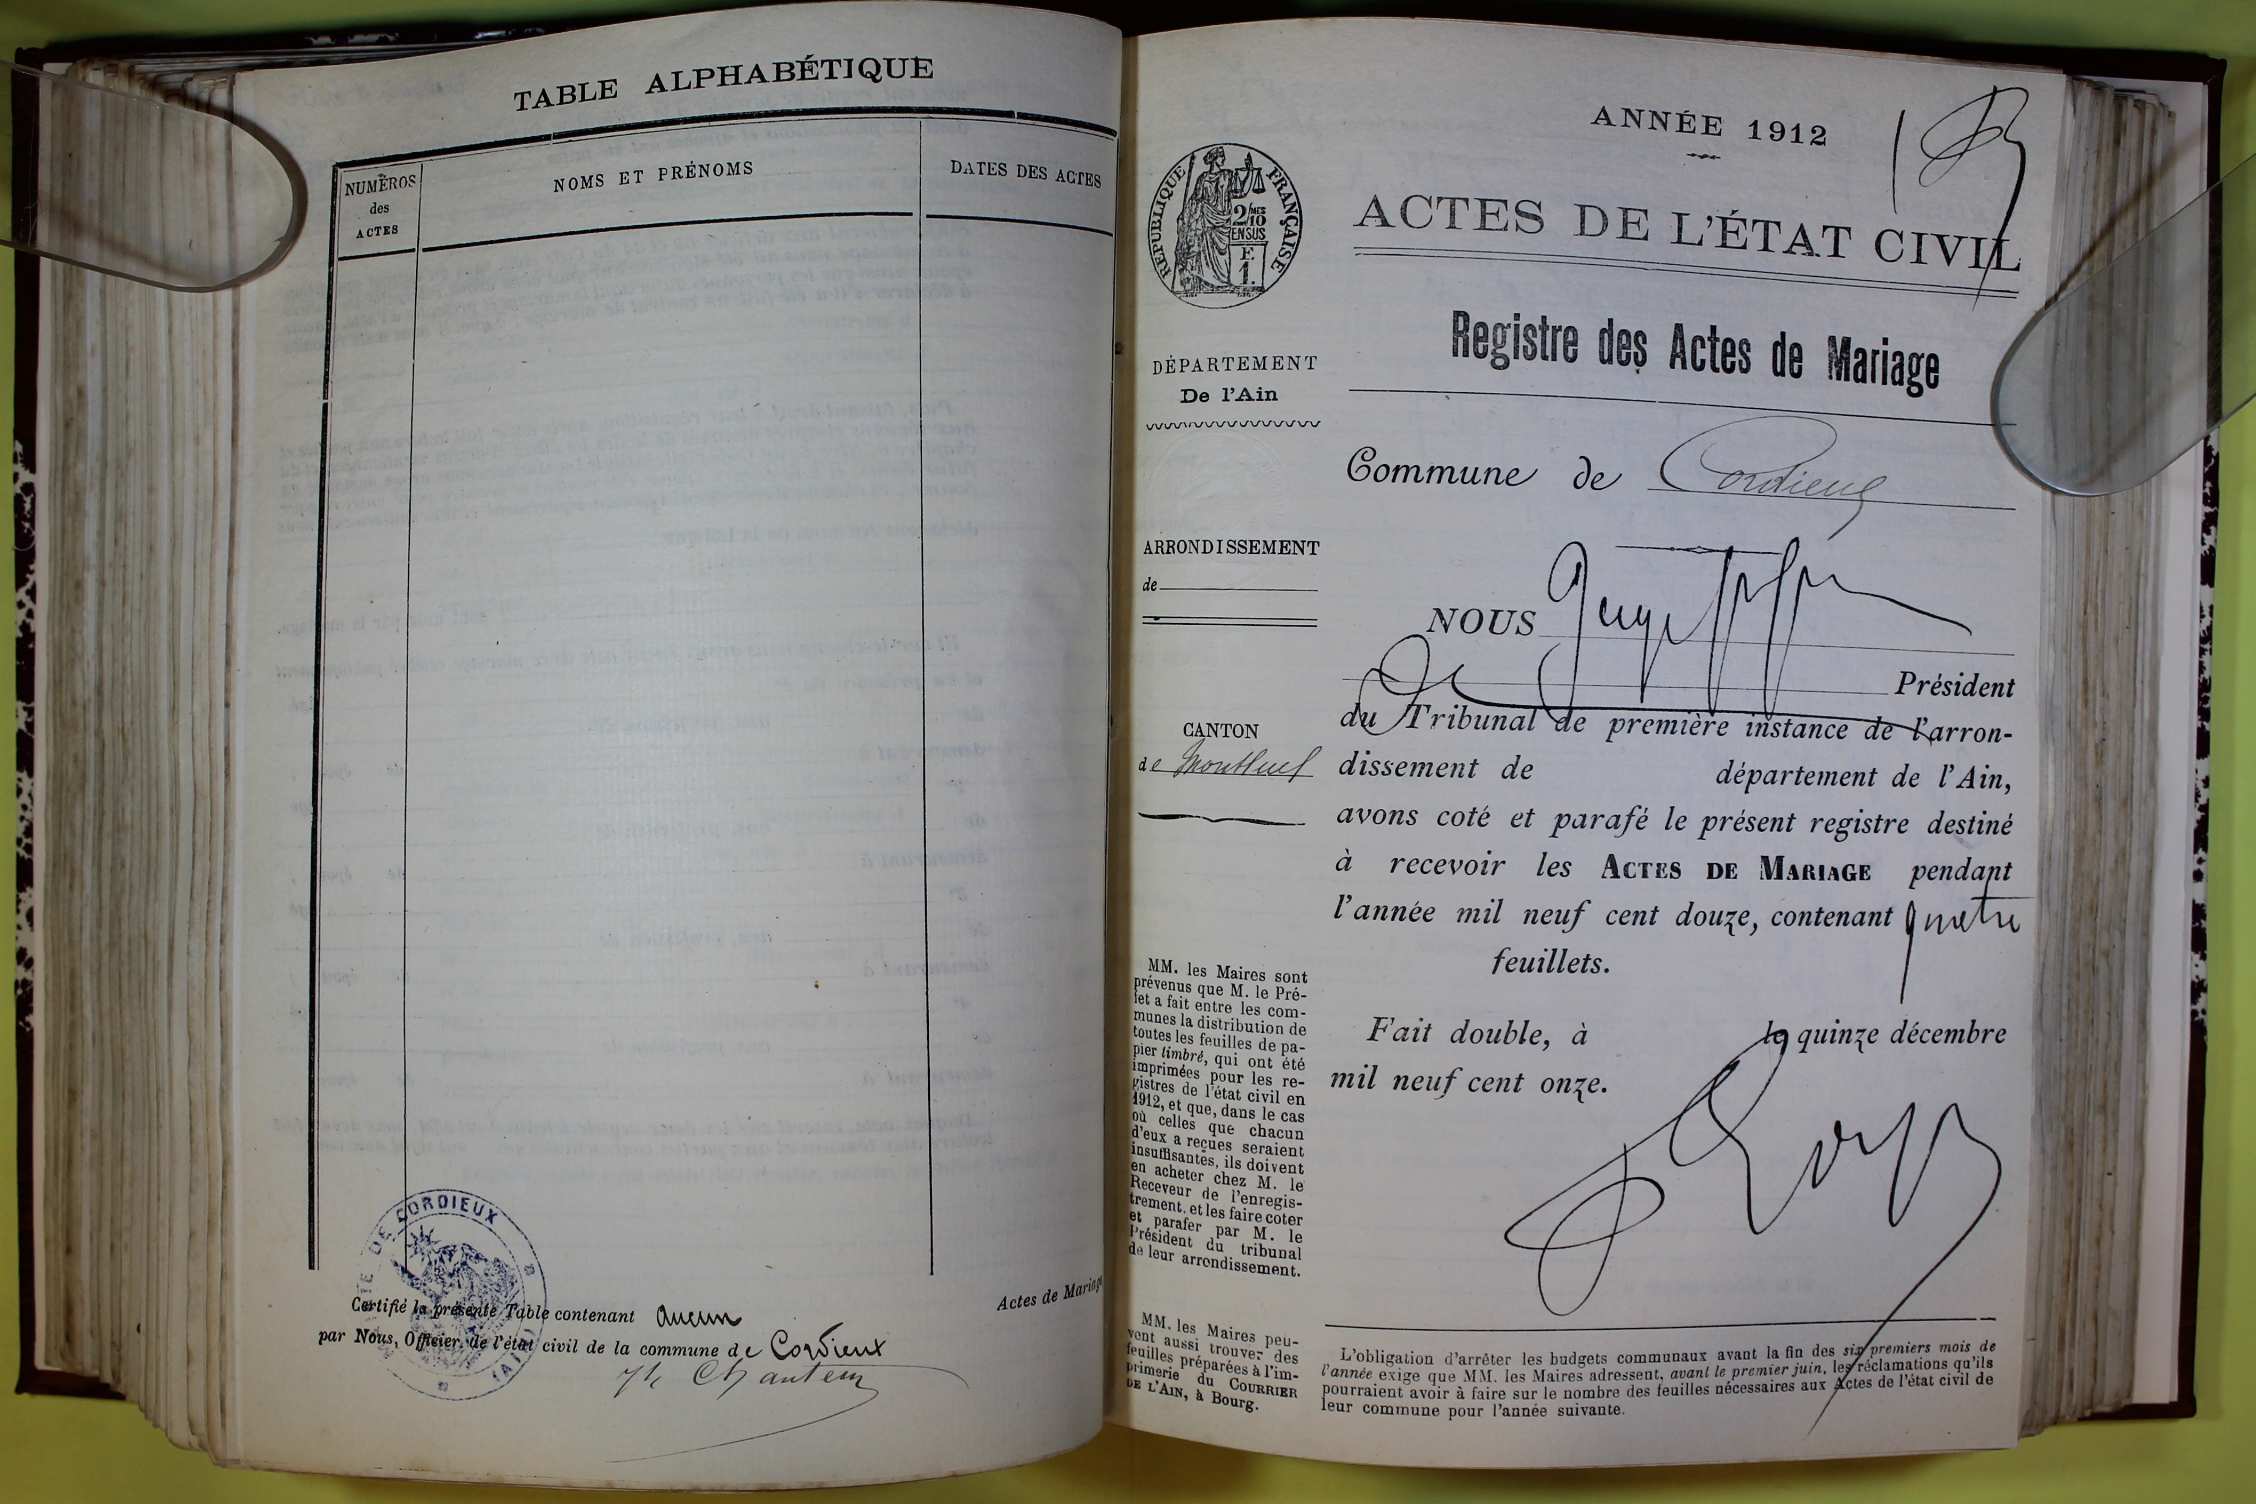 TABLE ALPHABÉTIQUE
NUMÉROS
des
ACTES
NOMS ET PRÉNOMS
DATES DES ACTES
MAIRIE DE CORDIEUX (AIN)
Certifié la présente Table contenant aucun
par Nous, Officier de l'état civil de la commune de Cordieux
Actes de Mariage
Chanteur
ANNÉE 1912
ACTES DE L'ÉTAT CIVIL
REPUBLIQUE FRANÇAISE
2/MES
10
EN SUS
F
1.
Registre des Actes de Mariage
DÉPARTEMENT
De l'Ain
Commune de Cordieux
ARRONDISSEMENT
de
NOUS
Président
CANTON
de Montluel
du Tribunal de première instance de l'arron-
dissement de département de l'Ain,
avons coté et parafé le présent registre destiné
à recevoir les ACTES DE MARIAGE pendant
l'année mil neuf cent douze, contenant quatre
feuillets.
Fait double, à le quinze décembre
mil neuf cent onze.
MM. les Maires sont
prévenus que M. le Pré-
fet a fait entre les com-
munes la distribution de
toutes les feuilles de pa-
pier timbré, qui ont été
imprimées pour les re-
gistres de l'état civil en
1912, et que, dans le cas
où celles que chacun
d'eux a reçues seraient
insuffisantes, ils doivent
en acheter chez M. le
Receveur de l'enregis-
trement, et les faire coter
et parafer par M. le
Président du tribunal
de leur arrondissement.
MM. les Maires peu-
vent aussi trouver des
feuilles préparées à l'im-
primerie du COURRIER
DE L'AIN, à Bourg.
L'obligation d'arrêter les budgets communaux avant la fin des six premiers mois de
l'année exige que MM. les Maires adressent, avant le premier juin, les réclamations qu'ils
pourraient avoir à faire sur le nombre des feuilles nécessaires aux Actes de l'état civil de
leur commune pour l'année suivante.